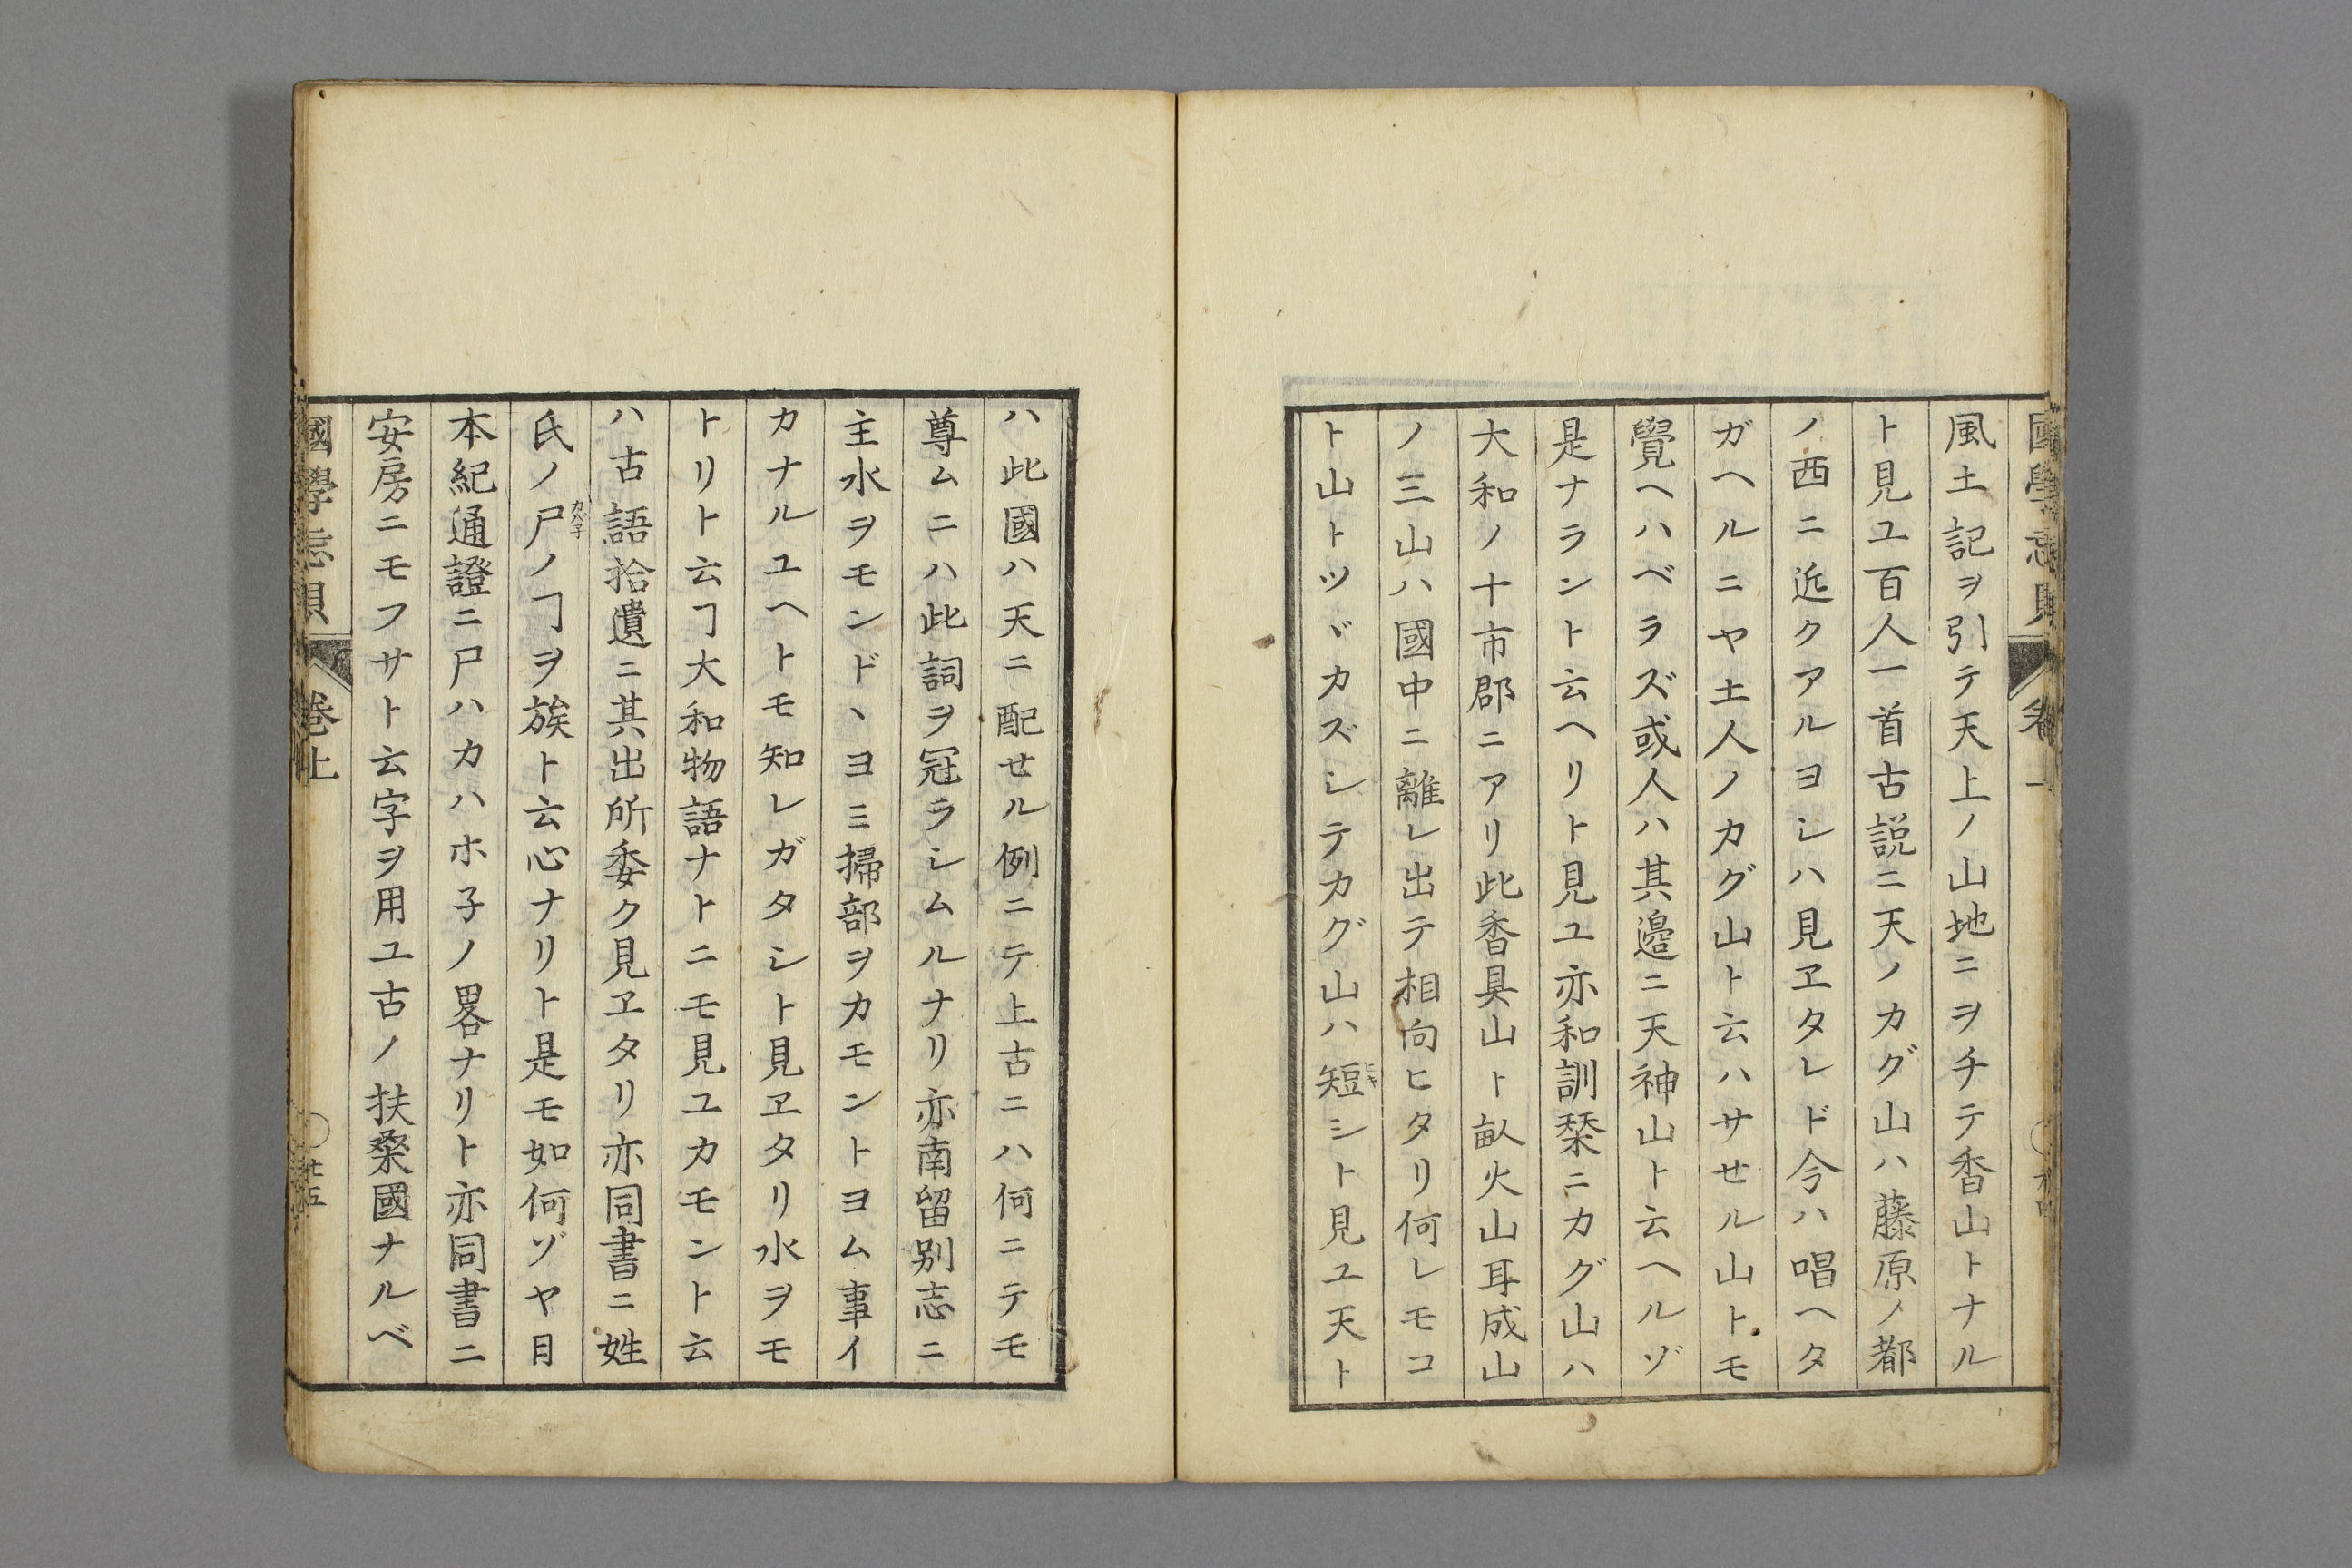 風土記ヲ引テ天上ノ山地ニヲチテ香山トナル
ト見ユ百人一首古説ニ天ノカグ山ハ藤原ノ都
ノ西ニ近クアルヨシハ見ヱタレド今ハ唱ヘタ
ガヘルニヤ土人ノカグ山ト云ハサせル山トモ
覺ヘハベラズ或人ハ其邉ニ天神山ト云ヘルゾ
是ナラント云ヘリト見ユ亦和訓栞ニカグ山ハ
大和ノ十市郡ニアリ此香具山ト畝火山耳成山
ノ三山ハ國中ニ離レ出テ相向ヒタリ何レモコ
ト山トツヾカズシテカグ山ハ短シト見ユ天ト
ハ此國ハ天ニ配せル例ニテ上古ニハ何ニテモ
尊ムニハ此詞ヲ冠ラシムルナリ亦南留别志ニ
主水ヲモンドヽヨミ掃部ヲカモントヨム事イ
カナルユヘトモ知レガタシト見ヱタリ水ヲモ
トリト云ヿ大和物語ナトニモ見ユカモント云
ハ古語拾遺ニ其出所委ク見ヱタリ亦同書ニ姓
氏ノ尸ノヿヲ族ト云心ナリト是モ如何ゾヤ日
カバ子
本紀通證ニ尸ハカハホ子ノ畧ナリト亦同書ニ
安房ニモフサト云字ヲ用ユ古ノ扶桒國ナルベ
國學忘貝
卷上
廿五